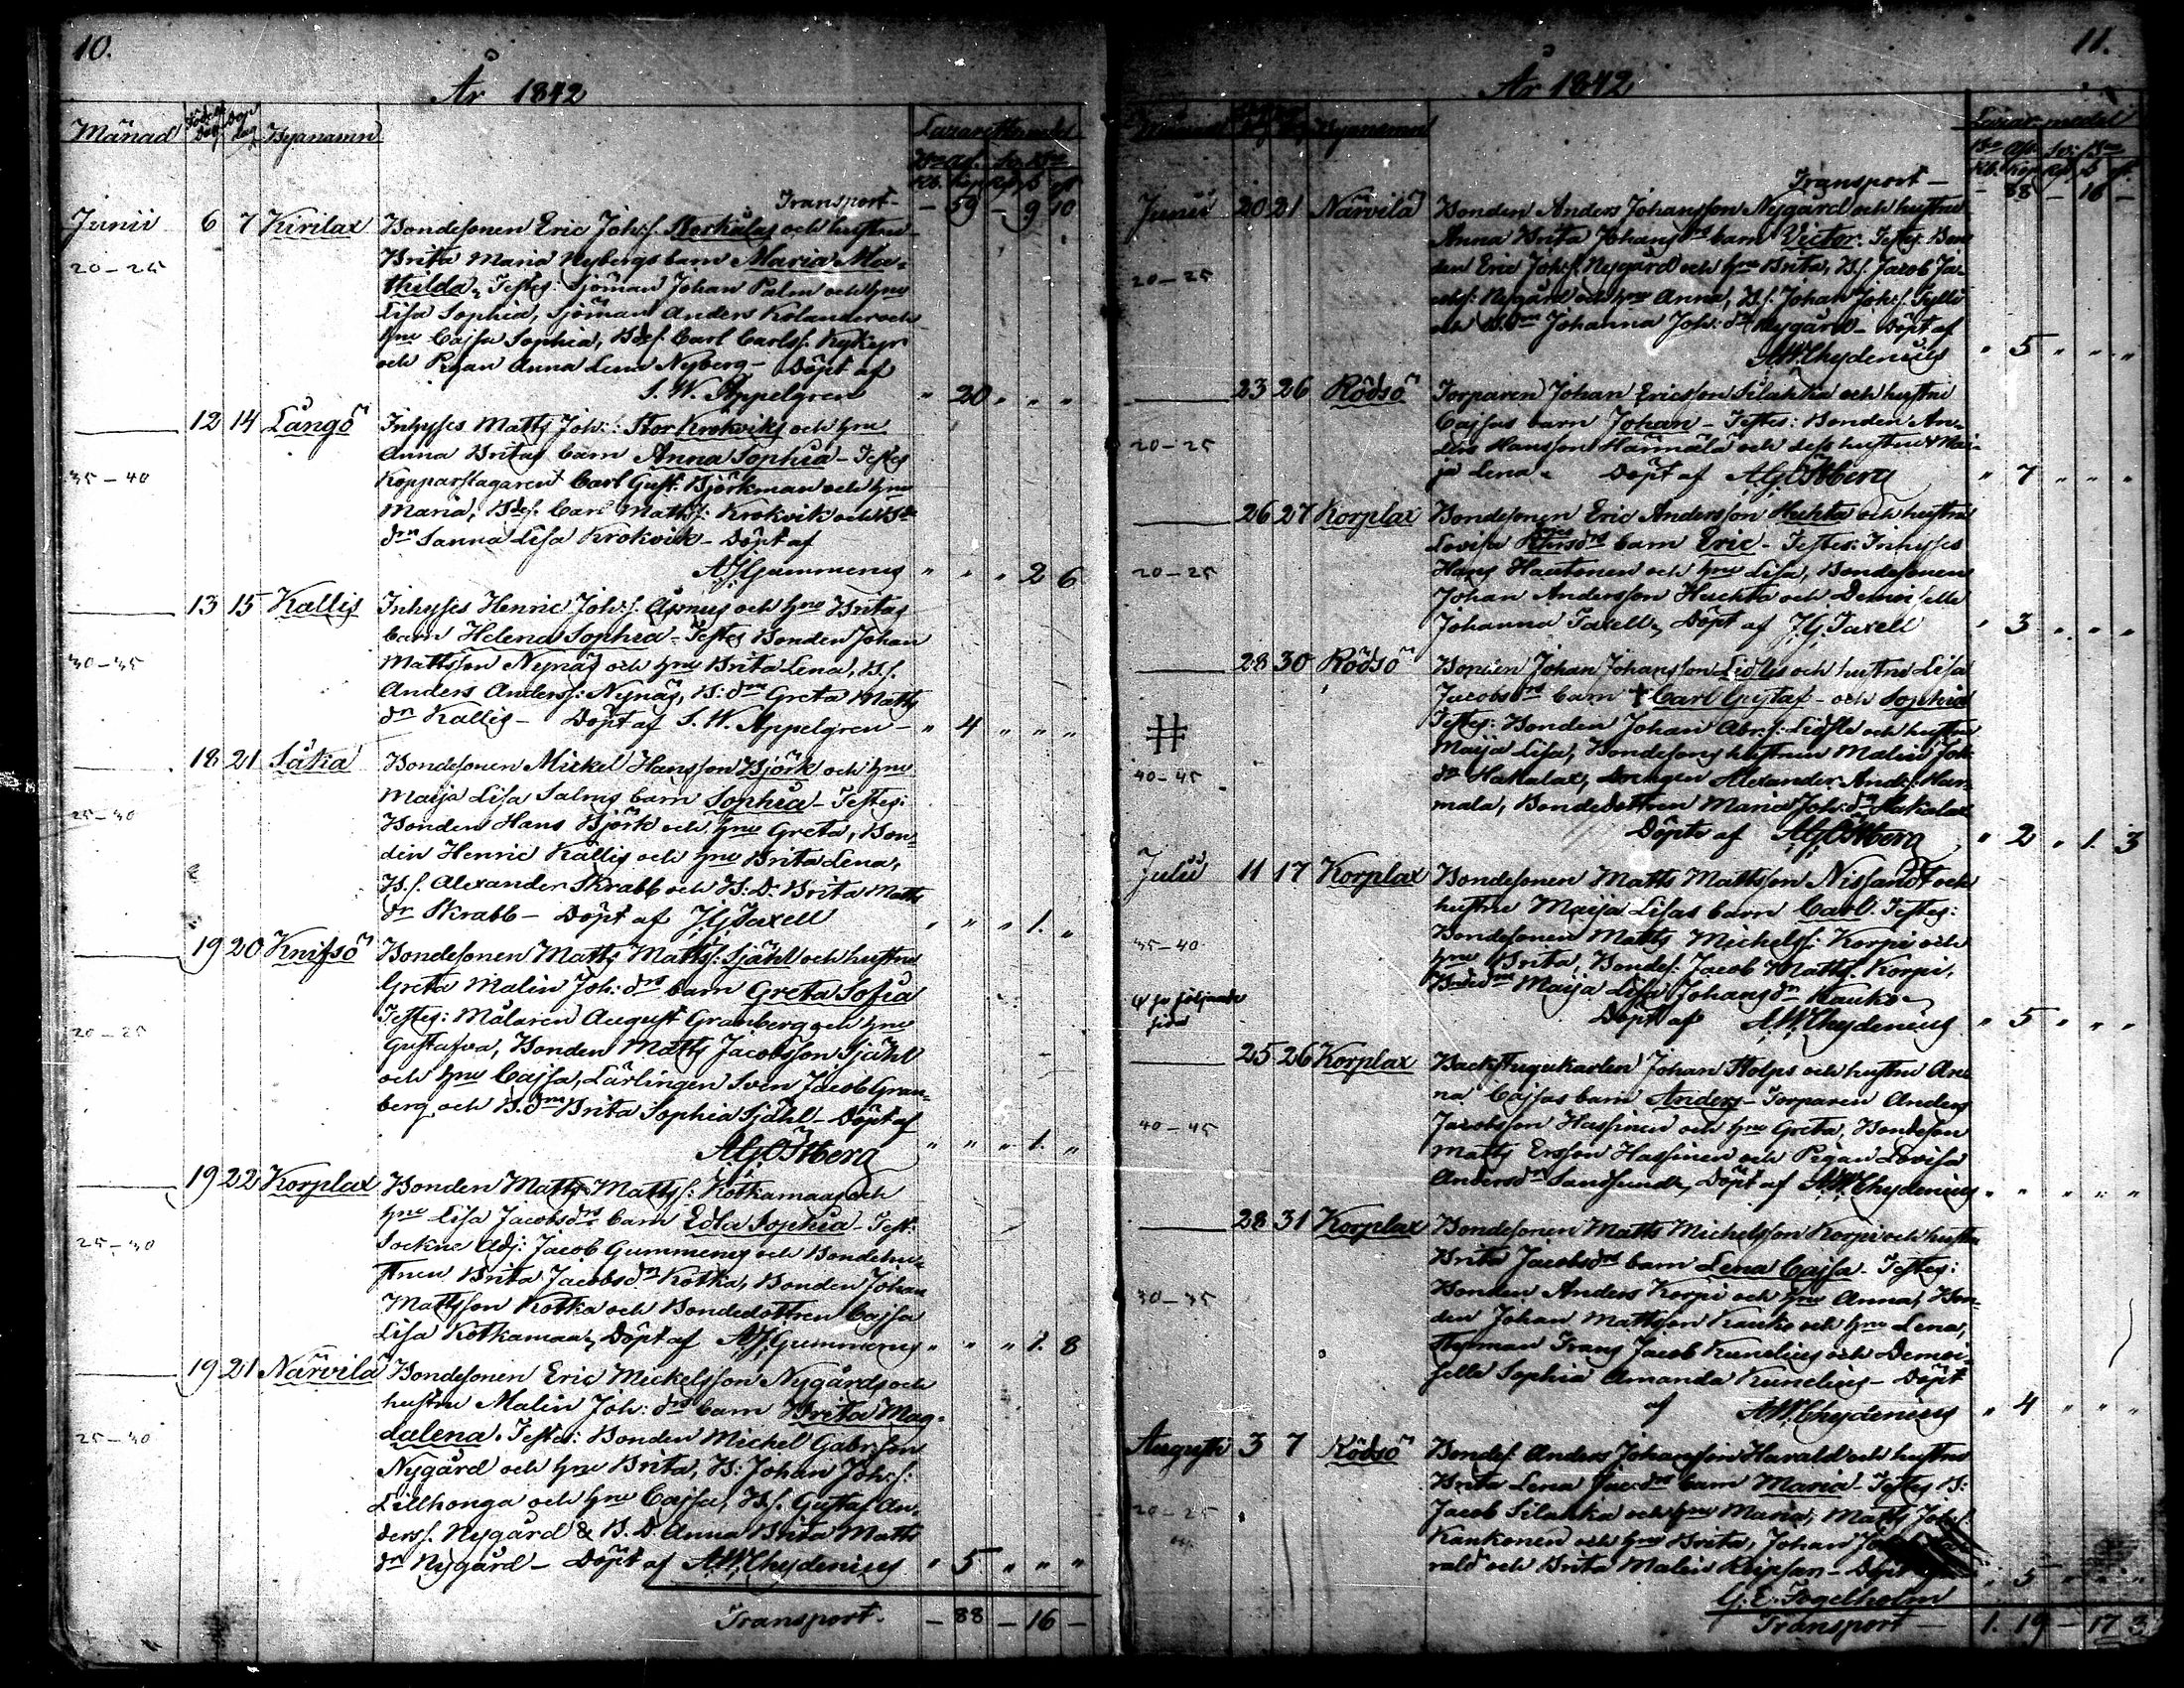 10.
År 1842
Månad Födelse Dag Dop dag Byanamn Lazaretts medel
Transport – – 59 – 9 10
Junii 6 7 Kirilax Bondesonen Eric Joh:s. Storkålas och hustru
Brita Maria Nybergs barn Maria Ma-
20–25 thilda, Testes: Sjöman Johan Palm och hru
Lisa Sophia, Sjöman Anders Kolander och
hru Cajsa Sophia, Bdes. Carl Carls: Kykyr
och Pigan Anna Lena Nyberg – Döpt af
S. W. Appelgren " 20 " " "
12 14 Långö Inhyses Matts Joh: Stor Krokviks och hru
Anna Britas barn Anna Sophia – Testes
35–40 Kopparslagaren Carl Gust. Björkman och hru
Maria, Bdes. Carl Matts: Krokvik och Bde
drn Sanna Lisa Krokvik – Döpt af
A. J. Gummerus " " " 2 6
13 15 Kallis Inhyses Henric Joh:s. Åsnus och hru Britas
barn Helena Sophia – Testes Bonden Johan
30–35 Mattsson Nynäs och hru Brita Lena, B.s.
Anders Anders: Nynäs, B: drn Greta Matts
dr Kallis – Döpt af S. W. Appelgren – " 4 " " "
18 21 Såka Bondesonen Mickel Hansson Björk och hru
Maija Lisa Salms barn Sophia – Testes:
25–30 Bonden Hans Björk och hru Greta, Bon-
den Henric Kallis och hru Brita Lena,
B.s. Alexander Skrabb och B: D. Brita Matts
dr Skrabb – Döpt af J. G. Taxell " " " 1. "
19 20 Knifsö Bondesonen Matts Matts: Sjähl och hustru
Greta Malin Joh: drs barn Greta Sofia
20–25 Testes: Målaren August Granberg och hru
Gustafva, Bonden Matts Jacobsson Sjähl
och hru Cajsa, Lärlingen Sven Jacob Gran-
berg och B. drn Brita Sophia Sjähl – Döpt af
A. G. Östberg " " " 1. "
19 22 Korplax Bonden Matts Matts: Kotkamaas och
hru Lisa Jacobsdrs barn Edla Sophia – Test:
25–30 Sockne Adj: Jacob Gummerus och Bondehu-
strun Brita Jacobsdr Kotka, Bonden Johan
Mattsson Kotka och Bondedottren Cajsa
Lisa Kotkamaa, Döpt af A. J. Gummerus " " " 1. 8
19 21 Närvilä Bondesonen Eric Mickelsson Nygårds och
hustru Malin Joh: drs barn Brita Mag-
25–30 dalena. Testes: Bonden Michel Gabr:sson
Nygård och hru Brita, B: Johan Joh:s:
Lillhonga och hru Cajsa, B.s. Gustaf An-
ders. Nygård & B. D. Anna Brita Matts
dr Nygård – Döpt af A. W. Chydenius " 5 " " "
Transport. – 88 – 16 –
11.
År 1842
Byanamn Lazar. medel
Transport – – 88 – 16 –
Junii 20 21 Närvilä Bonden Anders Johansson Nygård och hustru
Anna Brita Johans drs barn Victor. Testes: Bon-
20–25 den Eric Joh:s. Nygård och hru Brita, B.s. Jacob Ja-
cobs: Nygård och hru Anna, B.s. Johan Joh:s. Gylli
och B. drn Johanna Joh: dr Nygård – Döpt af
A. W. Chydenius " 5 " " "
23 26 Rödsö Torparen Johan Ericsson Silahka och hustru
Cajsas barn Johan – Testes: Bonden An-
20–25 ders Hansson Harmala och dess hustru Mai-
ja Lena – Döpt af A. G. Östberg " 7 " " "
26 27 Korplax Bondesonen Eric Andersson Huhta och hustru
Lovisa barn Eric – Testes: Inhyses
20–25 Hans Hautonen och hru Lisa, Bondesonen
Johan Andersson Huhta och Demoiselle
Johanna Taxell, Döpt af J. G. Taxell " 3 " " "
28 30 Rödsö Bonden Johan Johansson Lidlis och hustru Lisa
Jacobsdrs barn + Carl Gustaf – och Sophia
# Testes: Bonden Johan Abr:s: Lidle och hustru
Maija Lisa, Bondesons hustrun Malin Joh:
40–45 dr Hakalax, Drengen Alexander And:s: Har-
mala, Bondedottren Maria Joh: dr Hakalax
Döpte af A. G. Östberg " 2 " 1. 3
Julii 11 17 Korplax Bondesonen Matts Mattsson Nissand och
hustru Maija Lisas barn Carl. Testes:
35–40 Bondesonen Matts Michels: Korpi och
hru Brita, Bondes. Jacob Matts. Korpi,
följande sida Bde drn Maija Lisa Johans dr Kauko –
Döpt af A. W. Chydenius " 5 " " "
25 26 Korplax Backstugukarlen Johan Stolps och hustru An-
na Cajsas barn Anders – Torparen Anders
40–45 Jacobsson Hassinen och hru Greta, Bondeson
Matts Ersson Hassinen och Pigan Lovisa
Andersdr Sandsund, Döpt af A. W. Chydenius " " " " "
28 31 Korplax Bondesonen Matts Michelsson Korpi och hustru
Brita Jacobsdrs barn Lena Cajsa – Testes:
30–35 Bonden Anders Korpi och hru Anna, Bon-
den Johan Mattsson Kauko och hru Lena,
Styrman Frans Jacob Kunelius och Demoi-
selle Sophia Amanda Kunelius – Döpt
af A. W. Chydenius " 4 " " "
Augusti 3 7 Rödsö Bondes. Anders Johansson Harald och hustru
Brita Lena Jac: drs barn Maria – Testes B:
20–25 Jacob Silahka och hru Maria, Matts Joh:s.
Kankonen och hru Brita, Johan
rald och Brita Malin Reipsan – Döpt
G. E. Fogelholm " 5 " " "
Transport – 1. 19 – 17 3